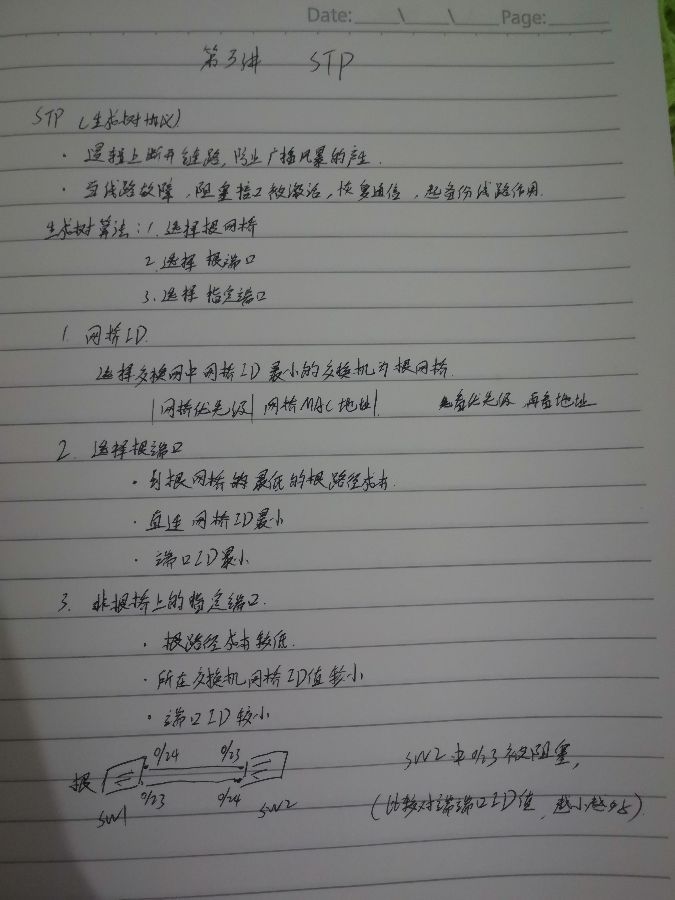 Date: \ \ Page:
第3讲 STP
STP (生成树协议)
· 逻辑上断开链路,防止广播风暴的产生.
· 当线路故障,阻塞接口被激活,恢复通信,起备份线路作用.
生成树算法:1. 选择根网桥
2. 选择 根端口
3. 选择 指定端口
1. 网桥ID.
选择交换网中网桥ID最小的交换机为根网桥.
|网桥优先级| 网桥MAC地址|. 先看优先级 再看地址
2. 选择根端口
· 到根网桥的最低的根路径成本.
· 直连 网桥ID最小
· 端口ID最小.
3. 非根桥上的指定端口.
· 根路径成本较低.
· 所在交换机网桥ID值较小
· 端口ID较小
0/24 0/23
根 SW2中0/23被阻塞,
0/23 0/24
SW1 SW2 (比较对端端口ID值,越小越优).